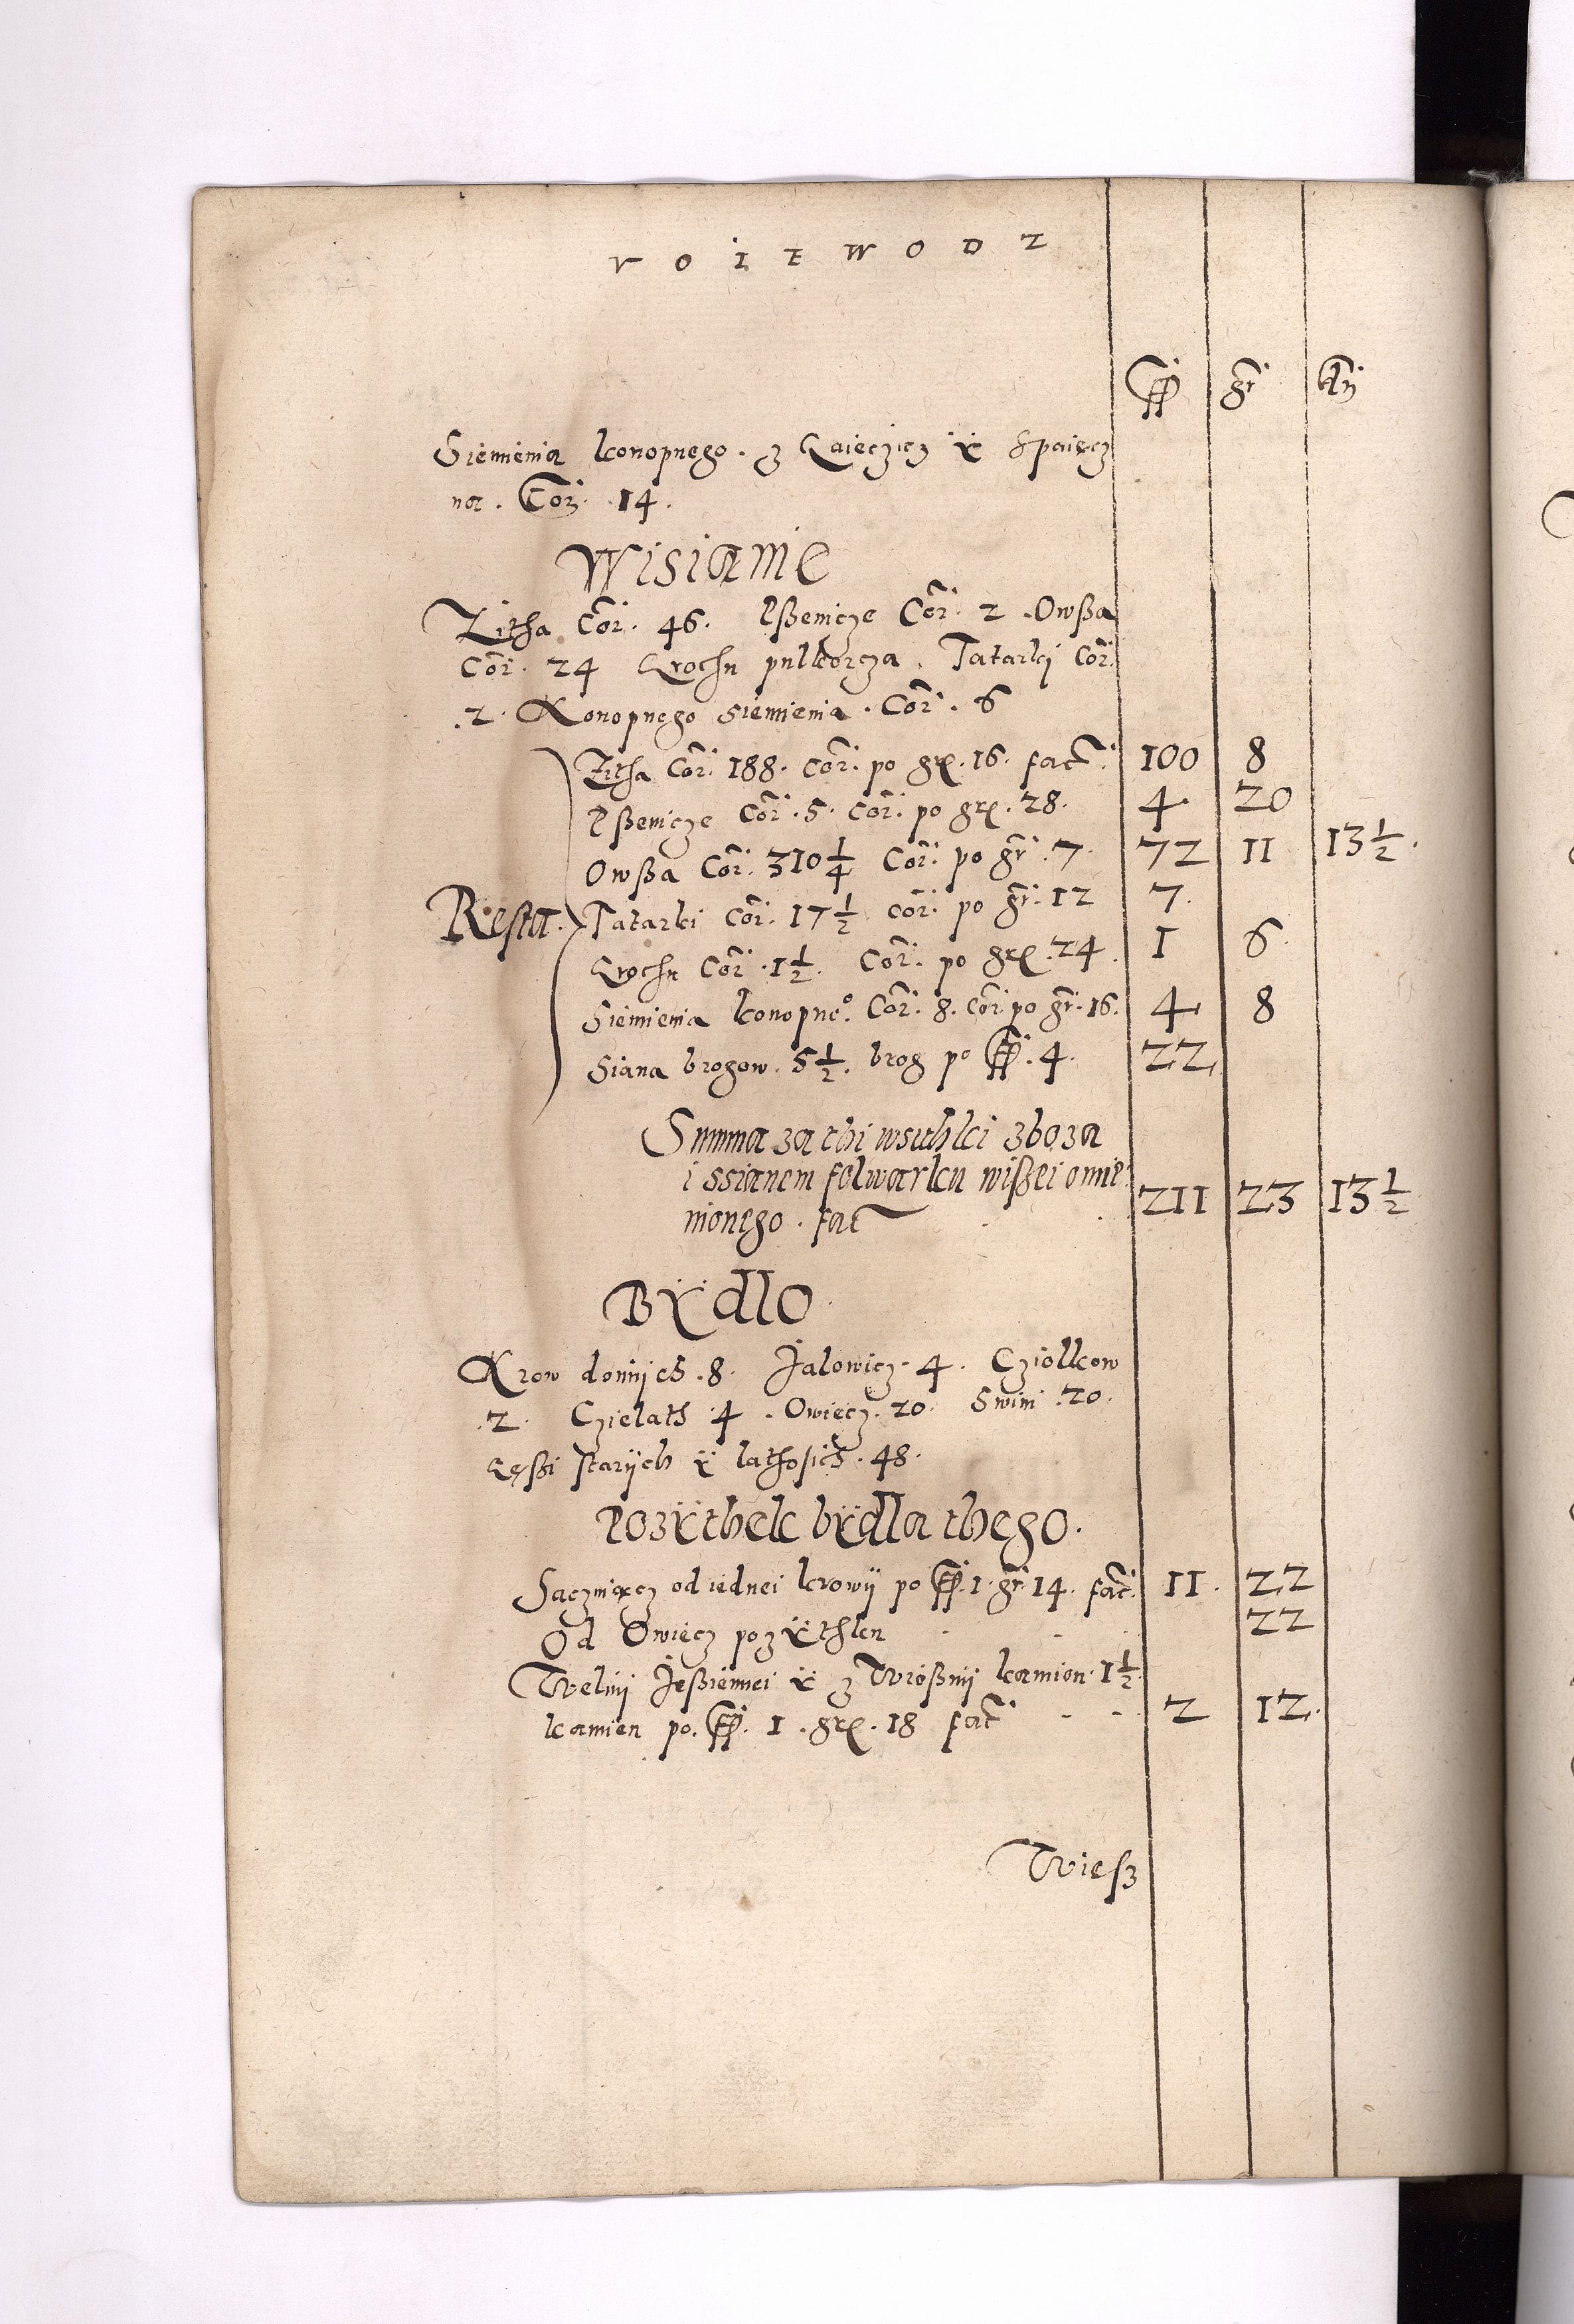 VOIEWODZ
ff gr dn
Siemienia konopnego. z Gaieczicz ÿ Spaięcz
na. Cor. 14.
Wisianie
Zitha Cor. 46. Pßenicze Cor. 2. Owßa
Cor. 24 Grochu pulkorcza. Tatarki Cor.
.2. Konopnego siemienia. Cor. 6
Zitha Cor. 188. Cor. po gr. 16. fact. 100 8
Pßenicze Cor. 5. Cor. po gr. 28. 4 20
Owßa Cor. 310 1/4 Cor. po gr. 7. 72 11 13 1/2.
Resta. Tatarki Cor. 17 1/2 Cor. po gr. 12 7.
Grochu Cor. 1 1/2. Cor. po gr. 24. 1 6
Siemienia konopneo. Cor. 8. Cor. po gr. 16. 4 8
Siana brogow. 5 1/2. brog po ff. 4. 22
Summa za thi wsithki zboza
i ssianem folwarku wißei omie
nionego. fac 211 23 13 1/2
Bÿdlo.
Krow doinijch. 8. Jalowicz. 4. Cziolkow
.2. Czielath 4. Owiecz. 20. Swini. 20.
Gęßi starijch ÿ lathosich. 48.
Pozÿthek bÿdla thego.
Saczniącz od iednei krowij po ff. 1. gr. 14. fac. 11. 22
Od Owiecz pozÿthku 22
Welnij Jeßiennei ÿ z Wioßnij kamion. 1 1/2.
kamien po. ff. 1. gr. 18 fac 2 12.
Wiesz